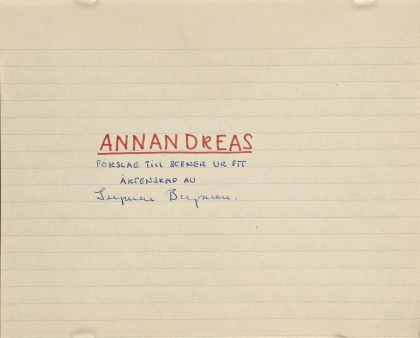 ANNANDREAS
FÖRSLAG TILL SCENER UR ETT
ÄKTENSKAP AV
Ingmar Bergman.